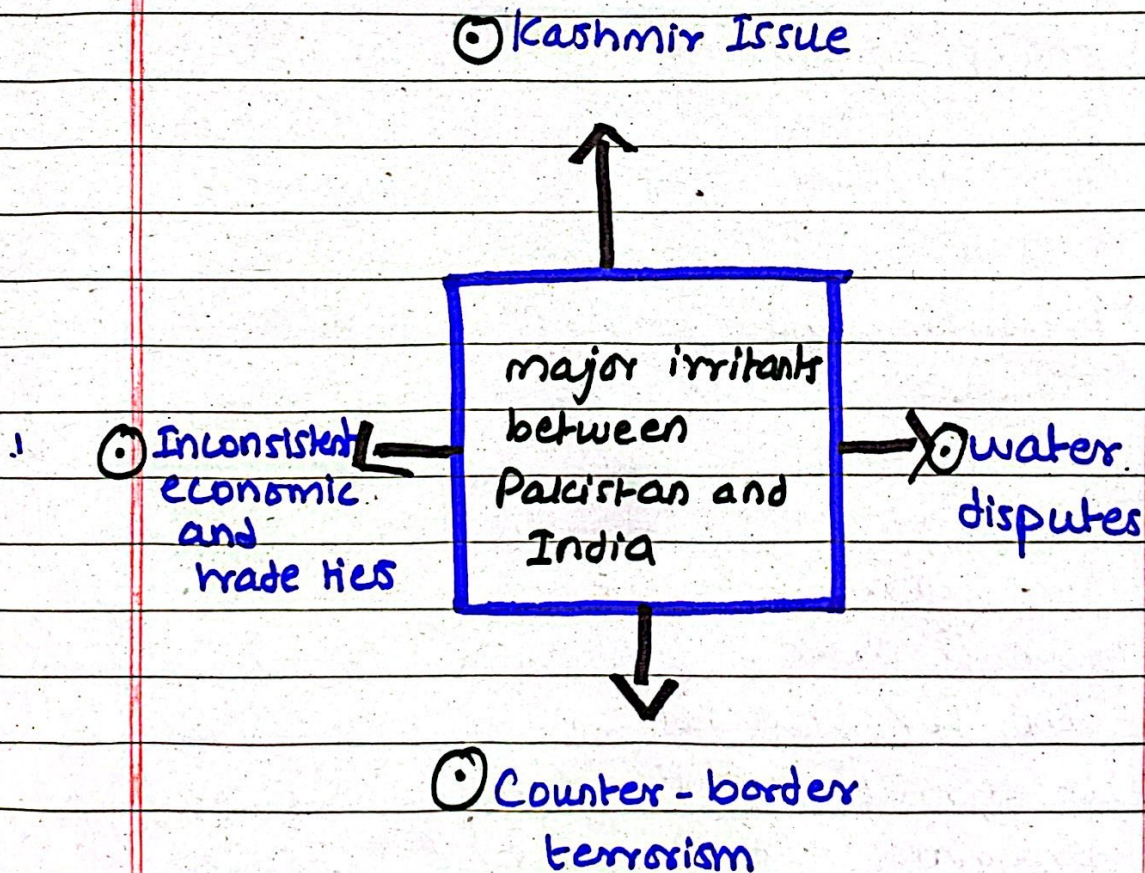 Kashmir Issue
major irritants
between
Pakistan and
India
Inconsistent
economic
and
trade ties
water
disputes
Counter-border
terrorism